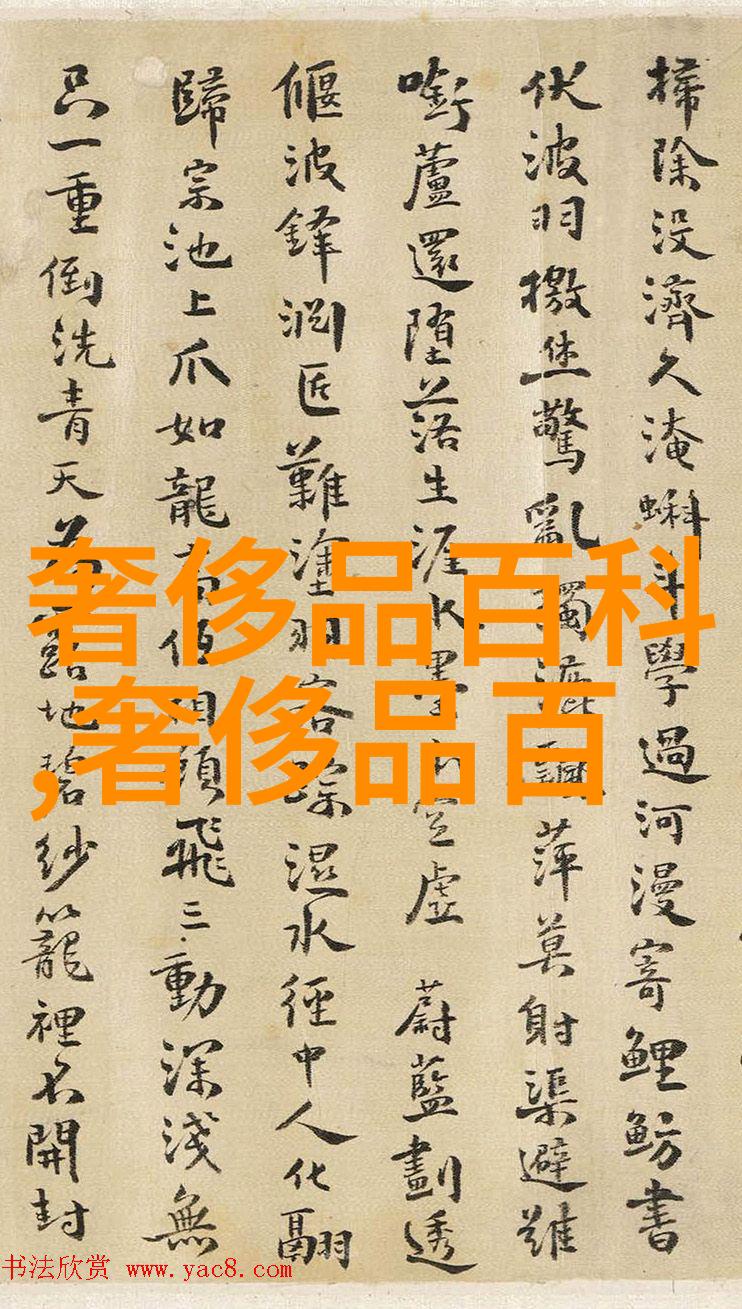 掃除没濟久淹蝌斗學過河漫寄鯉魴書
伏波羽檄驚亂獨萍莫射渠避難
啣蘆還墮落生涯水墨空虛 蔚藍劃透
偃波鋒匠難塗羽客蹤濕水經中人化翮
歸宗池上爪如龍頭飛三動深淺無
只一重倒洗青天露地碧紗籠裡不開封
奢侈品百科
,奢侈品百
书法欣赏 www.yac8.com